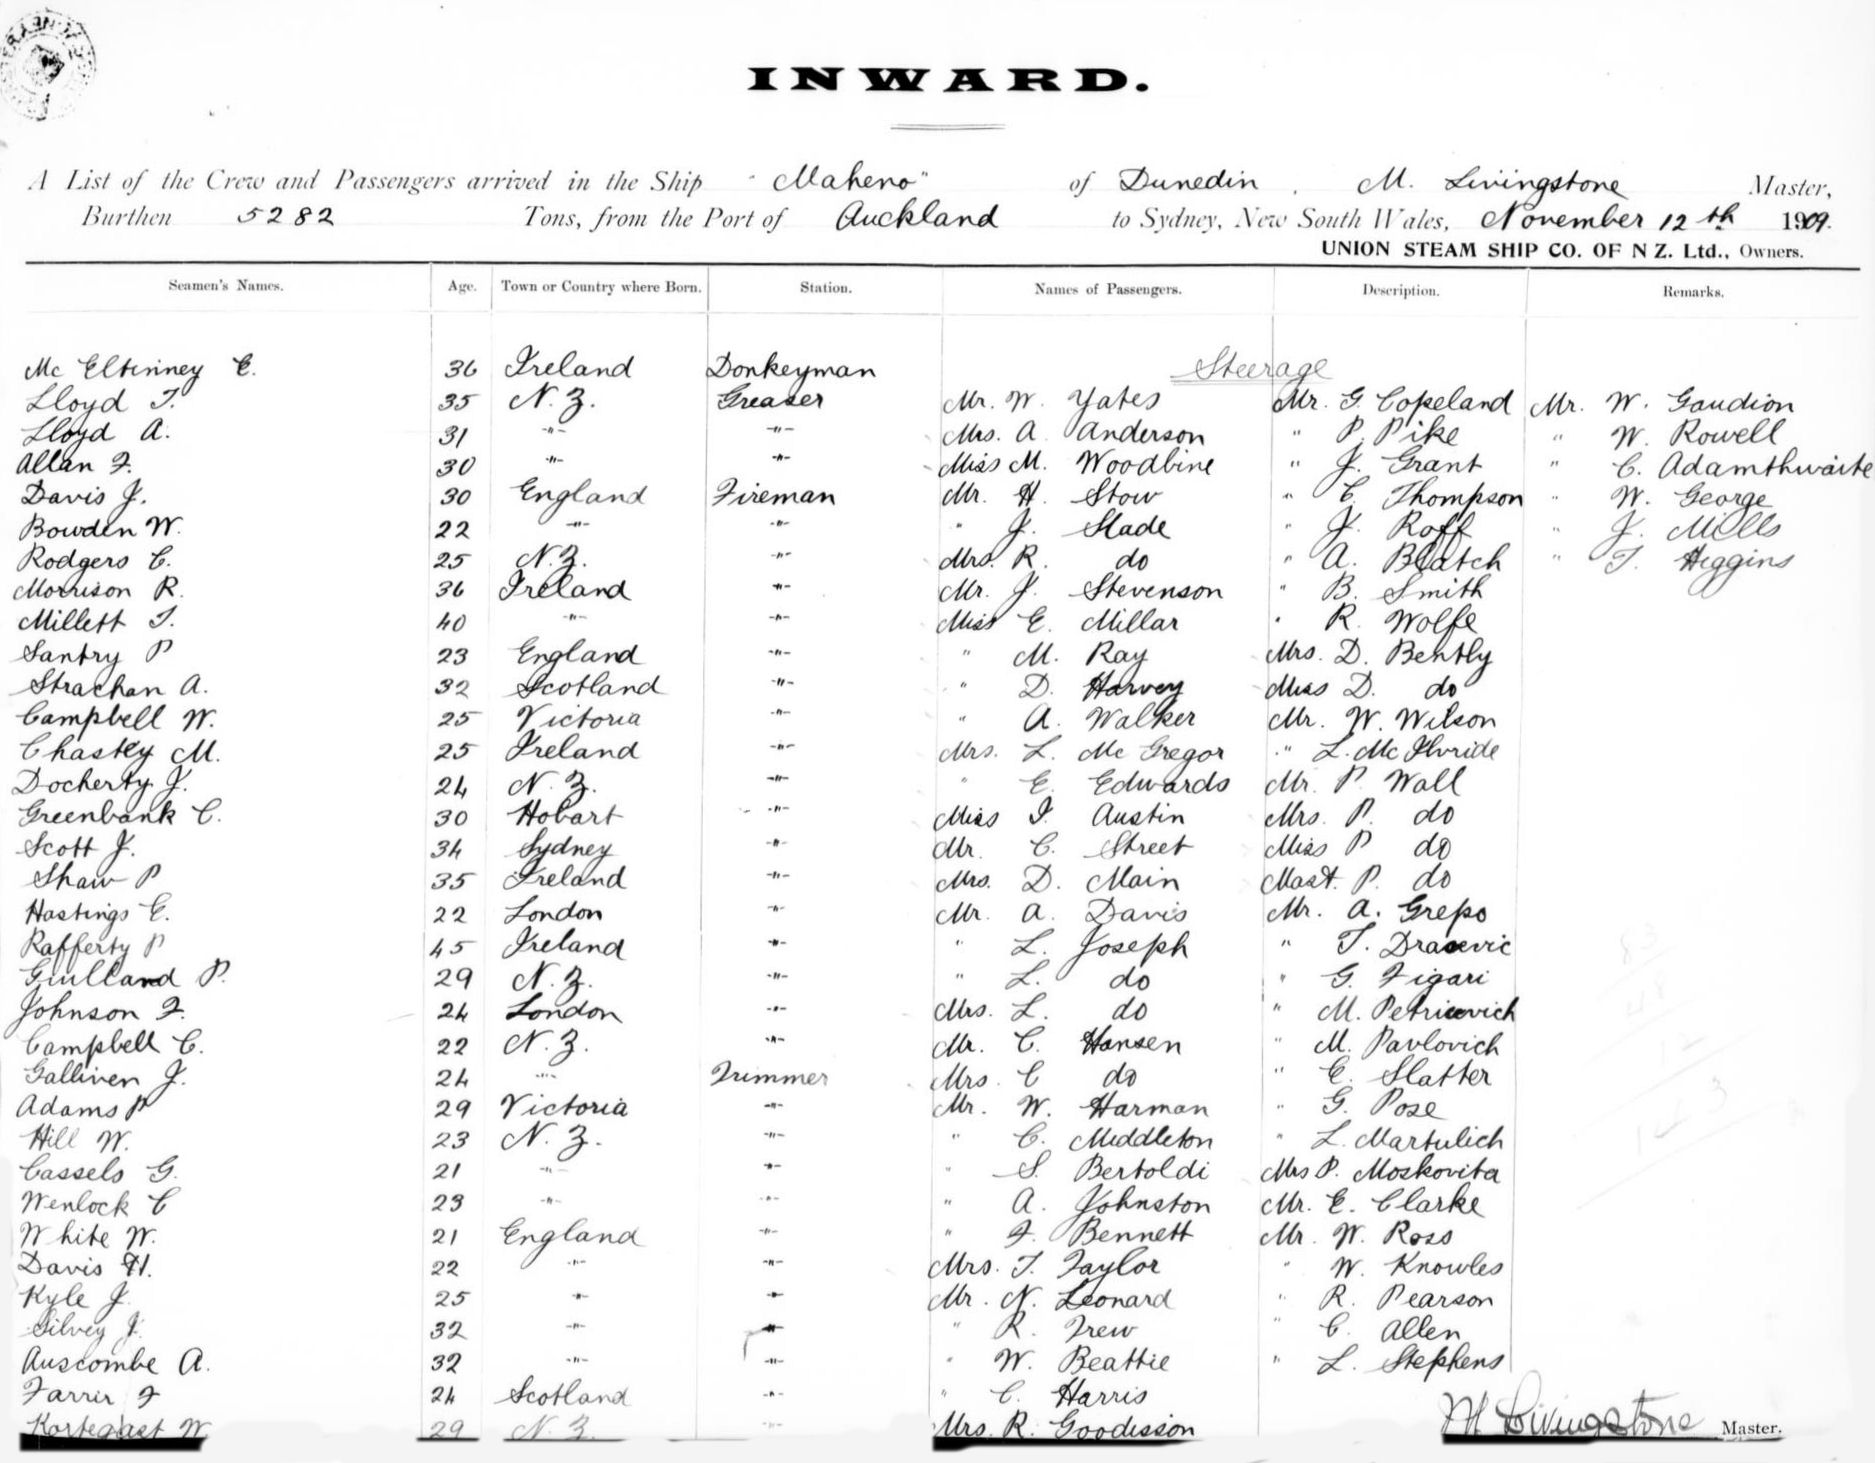 INWARD.
A List of the Crew and Passengers arrived in the Ship "Maheno" of Dunedin, M. Livingstone Master,
Burthen 5282 Tons, from the Port of Auckland to Sydney, New South Wales, November 12th 1909.
UNION STEAM SHIP CO. OF N Z. Ltd., Owners.
Seamen's Names. Age. Town or Country where Born. Station. Names of Passengers. Description. Remarks.
Mc Eltinney E. 36 Ireland Donkeyman Steerage
Lloyd T. 35 N.Z. Greaser Mr. W. Yates Mr. G. Copeland Mr. W. Gaudion
Lloyd A. 31 -"- -"- Mrs. A. Anderson " P. Pike " W. Rowell
Allan F. 30 -"- -"- Miss M. Woodbine " J. Grant " C. Adamthwaite
Davis J. 30 England Fireman Mr. H. Stow " C. Thompson " W. George
Bowden W. 22 -"- -"- " J. Slade " J. Roff " J. Mills
Rodgers C. 25 N.Z. -"- Mrs. R. do " A. Blatch " T. Higgins
Morrison R. 36 Ireland -"- Mr. J. Stevenson " B. Smith
Millett T. 40 -"- -"- Miss E. Millar " R. Wolfe
Santry P 23 England -"- " M. Ray Mrs. D. Bently
Strachan A. 32 Scotland -"- " D. Harvey Miss D. do
Campbell W. 25 Victoria -"- " A. Walker Mr. W. Wilson
Chastey M. 25 Ireland -"- Mrs. L. Mc Gregor " L. Mc Ilvride
Docherty J. 24 N.Z. -"- " E. Edwards Mr. P. Wall
Greenbank C. 30 Hobart -"- Miss I. Austin Mrs. P. do
Scott J. 34 Sydney -"- Mr. C. Street Miss P do
Shaw P 35 Ireland -"- Mrs. D. Main Mast. P. do
Hastings E. 22 London -"- Mr. A. Davis Mr. A. Grepo
Rafferty P 45 Ireland -"- " L. Joseph " T.
Giulland P. 29 N.Z. -"- " L. do " G. Figari
Johnson F. 24 London -"- Mrs. L. do " M. Petricevich
Campbell C. 22 N.Z. -"- Mr. C. Hansen " M. Pavlovich
Galliven J. 24 -"- Trimmer Mrs. C do " E. Slatter
Adams P 29 Victoria -"- Mr. W. Harman " G. Pose
Hill W. 23 N.Z. -"- " C. Middleton " L. Martulich
Cassels G. 21 -"- -"- " S. Bertoldi Mrs P. Moskovita
Wenlock C 23 -"- -"- " A. Johnston Mr. E. Clarke
White W. 21 England -"- " F. Bennett Mr. W. Ross
Davis H. 22 -"- -"- Mrs. T. Taylor " W. Knowles
Kyle J. 25 -"- -"- Mr. N. Leonard " R. Pearson
Silvey J. 32 -"- -"- " R. Trew " C. Allen
Auscombe A. 32 -"- -"- " W. Beattie " L. Stephens
Farrir F 24 Scotland -"- " C. Harris
Kortegast W 29 N.Z. -"- Mrs. R. Goodisson M Livingstone Master.